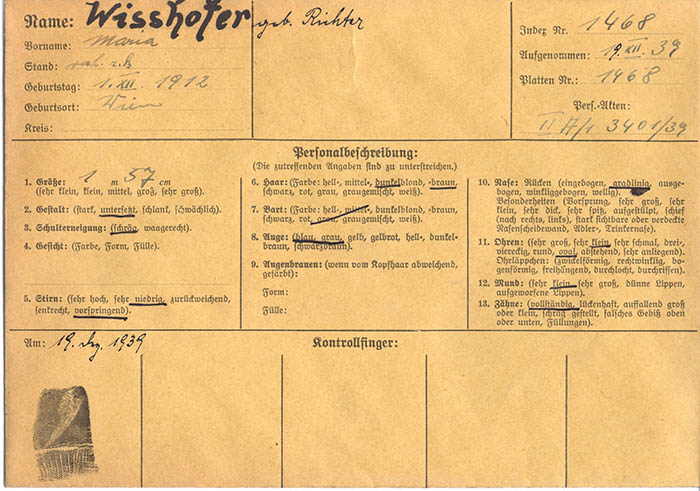 Name: Wisshofer geb. Richter
Vorname: Maria
Stand:
Geburtstag: 1. XII. 1912
Geburtsort: Wien
Kreis:
Index Nr. 1468
Aufgenommen: 19. XII. 39
Platten Nr.: 1468
Pers.-Akten:
II A/1 3401/39
Personalbeschreibung:
(Die zutreffenden Angaben sind zu unterstreichen.)
1. Größe: 1 m 57 cm
(sehr klein, klein, mittel, groß, sehr groß).
2. Gestalt: (stark, untersetzt, schlank, schwächlich).
3. Schulterneigung: (schräg, waagerecht).
4. Gesicht: (Farbe, Form, Fülle).
5. Stirn: (sehr hoch, sehr niedrig, zurückweichend,
senkrecht, vorspringend).
6. Haar: (Farbe: hell-, mittel-, dunkelblond, -braun,
schwarz, rot, grau, graugemischt, weiß).
7. Bart: (Farbe: hell-, mittel-, dunkelblond, -braun,
schwarz, rot, grau, graugemischt, weiß).
8. Auge: (blau, grau, gelb, gelbrot, hell-, dunkel-
braun, schwarzbraun).
9. Augenbrauen: (wenn vom Kopfhaar abweichend,
gefärbt):
Form:
Fülle:
10. Nase: Rücken (eingebogen, gradlinig, ausge-
bogen, winkliggebogen, wellig).
Besonderheiten (Vorsprung, sehr groß, sehr
klein, sehr dick, sehr spitz, aufgestülpt, schief
(nach rechts, links), stark sichtbare oder verdeckte
Nasenscheidewand, Adler-, Trinkernase).
11. Ohren: (sehr groß, sehr klein, sehr schmal, drei-,
viereckig, rund, oval, abstehend, sehr anliegend).
Ohrläppchen: (zwickelförmig, rechtwinklig, bo-
genförmig, freihängend, durchlocht, durchrissen).
12. Mund: (sehr klein, sehr groß, dünne Lippen,
aufgeworfene Lippen).
13. Zähne: (vollständig, lückenhaft, auffallend groß
oder klein, schräg gestellt, falsches Gebiß oben
oder unten, Füllungen).
Am: 19. Dez. 1939
Kontrollfinger: